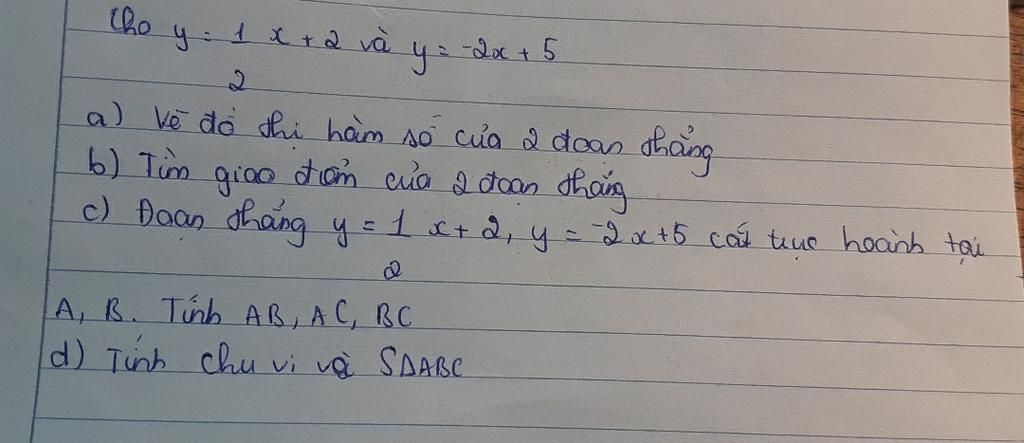 Cho y = 1 x + 2 và y = -2x + 5
2
a) Vẽ đồ thị hàm số của 2 đoạn thẳng
b) Tìm giao điểm của 2 đoạn thẳng
c) Đoạn thẳng y = 1 x + 2, y = -2x + 5 cắt trục hoành tại
2
A, B. Tính AB, AC, BC
d) Tính chu vi và SΔABC